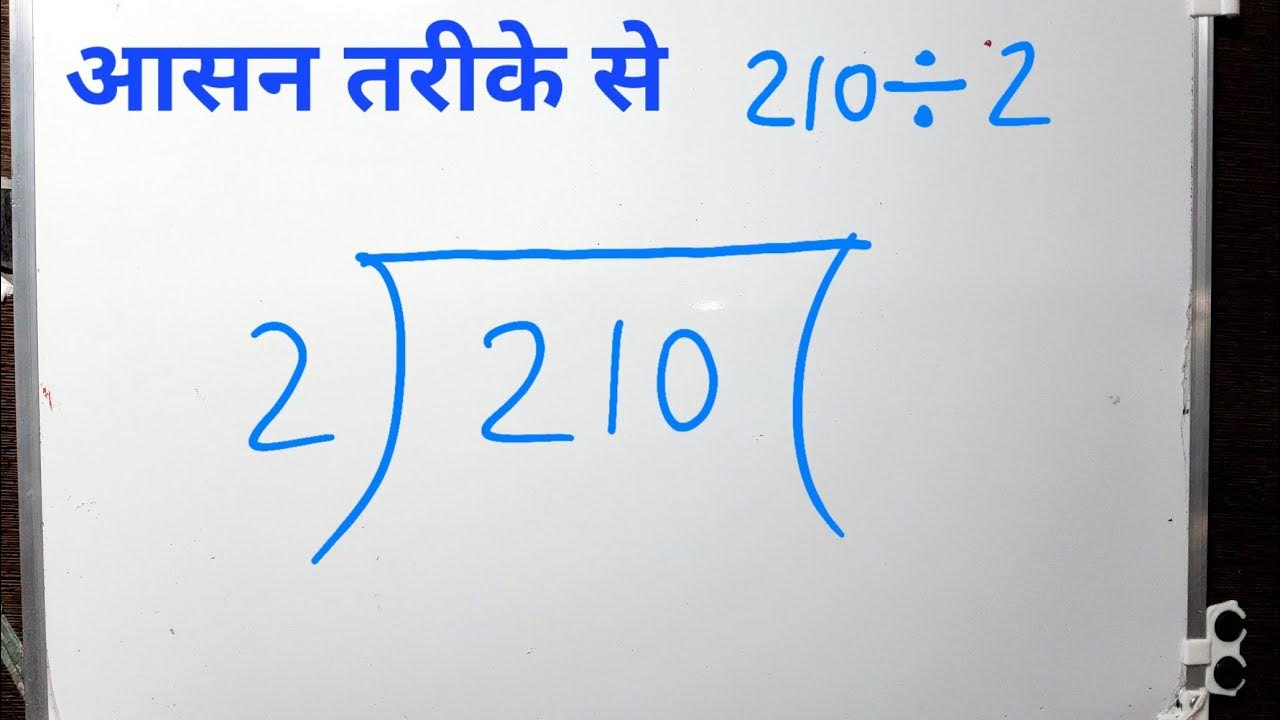 आसन तरीके से 210÷2
2)210(